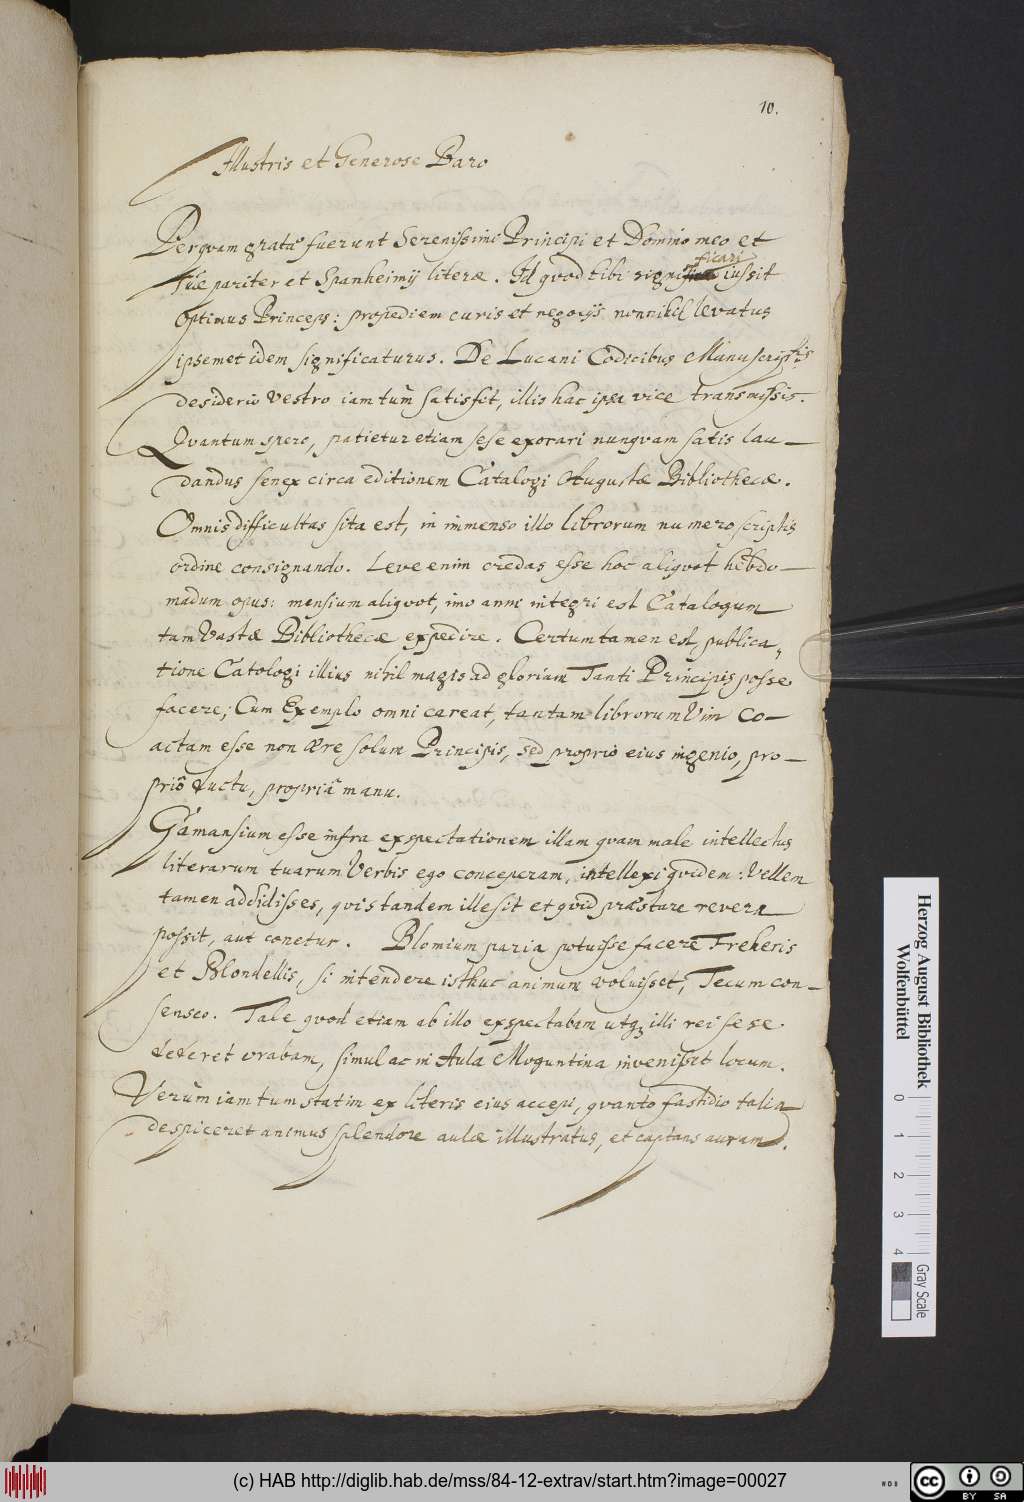 10.
Illustris et Generose Baro
Perquam gratæ fuerunt Serenissimi Principi et Domino meo et
tuæ pariter et Spanheimij literæ. Id quod tibi significari iussit
Optimus Princeps: propediem curis et negocijs nonnihil levatus
ipsemet idem significaturus. De Lucani Codicibus Manuscriptis
desiderio vestro iam tum satisfit, illis hac ipsa vice transmissis.
Quantum spero, patietur etiam sese exorari nunquam satis lau-
dandus senex circa editionem Catalogi Augustæ Bibliothecæ.
Omnis difficultas sita est, in immenso illo librorum numero scriptis
ordine consignando. Leve enim credas esse hoc aliquot hebdo-
madum opus: mensium aliquot, imo anni integri est Catalogum
tam Vastæ Bibliothecæ expedire. Certum tamen est, publica-
tione Catologi illius nihil magis ad gloriam Tanti Principis posse
facere; Cum Exemplo omni careat, tantam librorum Vim co-
actam esse non ære solum Principis, sed proprio eius ingenio, pro-
priô ductu, propriâ manu.
Gamansium esse infra exspectationem illam quam male intellectus
literarum tuarum Verbis ego conceperam, intellexi quidem: Vellem
tamen addidisses, quis tandem ille sit et quid præstare revera
possit, aut conetur. Blomium paria potuisse facere Freheris
et Blondellis, si intendere isthuc animum voluisset, Tecum con-
sentio. Tale quod etiam ab illo exspectabam utq; illi rei sese
dederet orabam, simul ac in Aula Moguntina invenisset locum.
Verùm iam tum statim ex literis eius accepi, quanto fastidio talia
despiceret animus splendore aulæ illustratus, et captans auram.
Herzog August Bibliothek
Wolfenbüttel
0 1 2 3 4
Gray Scale
(c) HAB http://diglib.hab.de/mss/84-12-extrav/start.htm?image=00027
cc BY SA